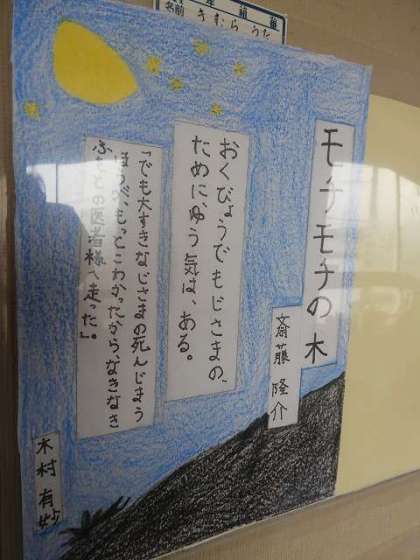 名前 きむら うた
モチモチの木
斎藤 隆介
おくびょうでもじさまの、
ために、ゆう気は、ある。
「でも大すきなじさまの死んじまう
ほうが、もっとこわかったから、なきなき
ふもとの医者様へ走った」。
木村 有妙